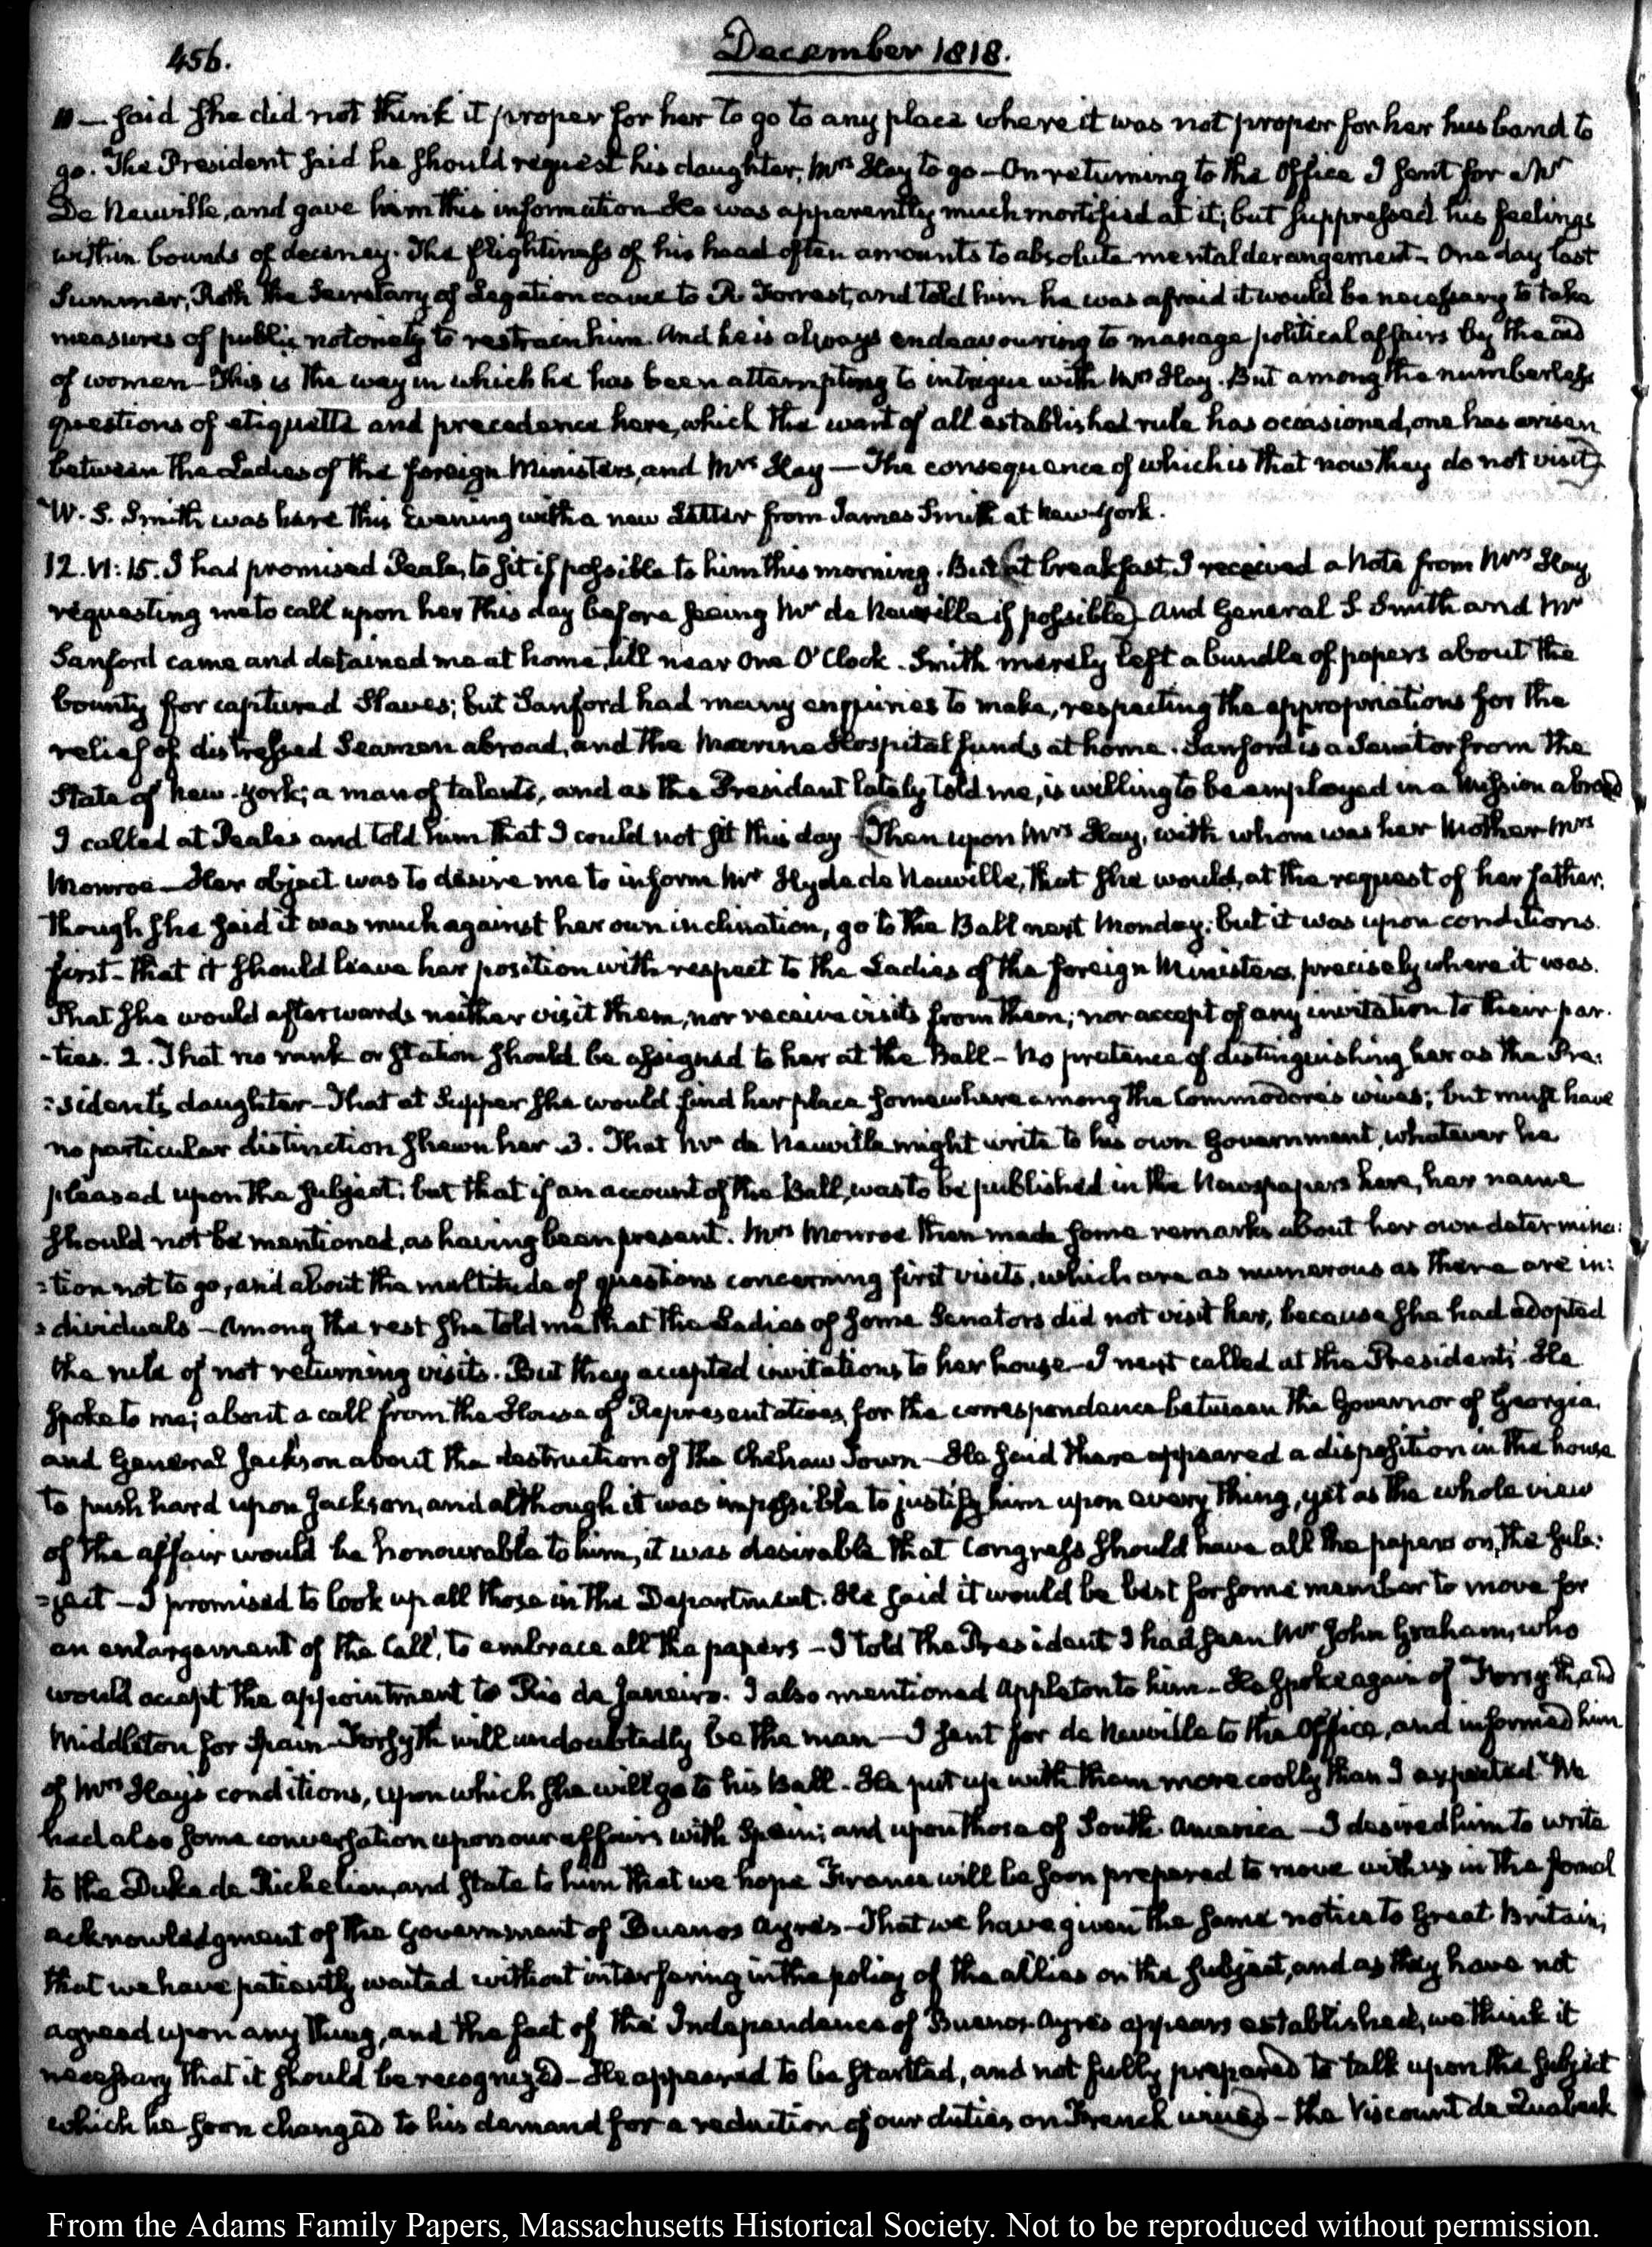 456.
December 1818.
11 — said she did not think it proper for her to go to any place where it was not proper for her husband to
go. The President said he should request his daughter, Mrs Hay to go — On returning to the Office I sent for Mr
De Neuville, and gave him this information — He was apparently much mortified at it; but suppressed his feelings
within bounds of decency. The flightiness of his head often amounts to absolute mental derangement — One day last
Summer, Roth the Secretary of Legation came to R. Forrest, and told him he was afraid it would be necessary to take
measures of public notoriety to restrain him. And he is always endeavouring to manage political affairs by the aid
of women — This is the way in which he has been attempting to intrigue with Mrs Hay. But among the numberless
questions of etiquette and precedence here, which the want of all established rule has occasioned, one has arisen
between the Ladies of the foreign Ministers, and Mrs Hay — The consequence of which is that now they do not visit)
W. S. Smith was here this Evening with a new Letter from James Smith at New-York.
12. VI: 15. I had promised Peale, to sit if possible to him this morning. But (at breakfast, I received a Note from Mrs Hay
requesting me to call upon her this day before seeing Mr de Neuville if possible) And General S Smith and Mr
Sanford came and detained me at home, till near One O'Clock. Smith merely left a bundle of papers about the
bounty for captured Slaves; but Sanford had many enquiries to make, respecting the appropriations for the
relief of distressed Seamen abroad, and the Marine Hospital funds at home. Sanford is a Senator from the
State of New-York; a man of talents, and as the President lately told me, is willing to be employed in a Mission abroad
I called at Peale's and told him that I could not sit this day — (Then upon Mrs Hay, with whom was her Mother Mrs
Monroe — Her object was to desire me to inform Mr Hyde de Neuville, that she would, at the request of her father,
though she said it was much against her own inclination, go to the Ball next Monday; but it was upon conditions.
first — that it should leave her position with respect to the Ladies of the foreign Ministers, precisely where it was.
That she would afterwards neither visit them, nor receive visits from them; nor accept of any invitation to their par-
-ties. 2. That no rank or station should be assigned to her at the Ball — No pretence of distinguishing her as the Pre:
:sident's daughter — That at Supper she would find her place somewhere among the Commodore's wives; but must have
no particular distinction shewn her. 3. That Mr de Neuville might write to his own Government, whatever he
pleased upon the subject; but that if an account of the Ball, was to be published in the Newspapers here, her name
should not be mentioned, as having been present. Mrs Monroe then made some remarks about her own determina:
:tion not to go, and about the multitude of questions concerning first visits, which are as numerous as there are in:
:dividuals — Among the rest she told me that the Ladies of some Senators did not visit her, because she had adopted
the rule of not returning visits. But they accepted invitations to her house — I next called at the President's. He
spoke to me, about a call from the House of Representatives, for the correspondence between the Governor of Georgia,
and General Jackson about the destruction of the Chehaw Town — He said there appeared a disposition in the house
to push hard upon Jackson, and although it was impossible to justify him upon every thing, yet as the whole view
of the affair would be honourable to him, it was desirable that Congress should have all the papers on the sub:
:ject — I promised to look up all those in the Department. He said it would be best for some member to move for
an enlargement of the Call, to embrace all the papers — I told the President I had seen Mr John Graham, who
would accept the appointment to Rio de Janeiro. I also mentioned Appleton to him — He spoke again of Forsyth, and
Middleton for Spain — Forsyth will undoubtedly be the man — I sent for de Neuville to the Office, and informed him
of Mrs Hay's conditions, upon which she will go to his Ball — He put up with them more coolly than I expected. We
had also some conversation upon our affairs with Spain; and upon those of South-America — I desired him to write
to the Duke de Richelieu, and state to him that we hope France will be soon prepared to move with us in the formal
acknowledgment of the Government of Buenos Ayres — That we have given the same notice to Great-Britain;
that we have patiently waited without interfering in the policy of the allies on the subject, and as they have not
agreed upon any thing, and the fact of the Independence of Buenos-Ayres appears established, we think it
necessary that it should be recognized — He appeared to be startled, and not fully prepared to talk upon the subject
which he soon changed to his demand for a reduction of our duties on French wines) — the Viscount de Quabeck
From the Adams Family Papers, Massachusetts Historical Society. Not to be reproduced without permission.